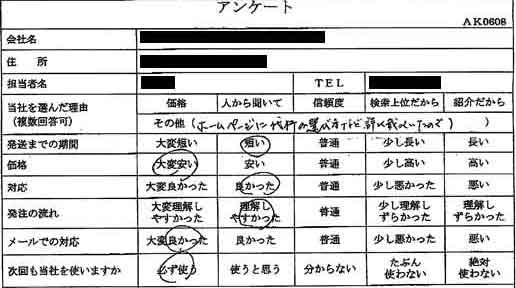 アンケート
AK0608
会社名
住 所
担当者名 TEL
当社を選んだ理由 (複数回答可) 価格 人から聞いて 信頼度 検索上位だから 紹介だから
その他 (ホームページに の選び方など詳しく載っていたので) )
発送までの期間 大変短い 短い 普通 少し長い 長い
価格 大変安い 安い 普通 少し高い 高い
対応 大変良かった 良かった 普通 少し悪かった 悪い
発注の流れ 大変理解しやすかった 理解しやすかった 普通 少し理解しずらかった 理解しずらかった
メールでの対応 大変良かった 良かった 普通 少し悪かった 悪い
次回も当社を使いますか 必ず使う 使うと思う 分からない たぶん使わない 絶対使わない